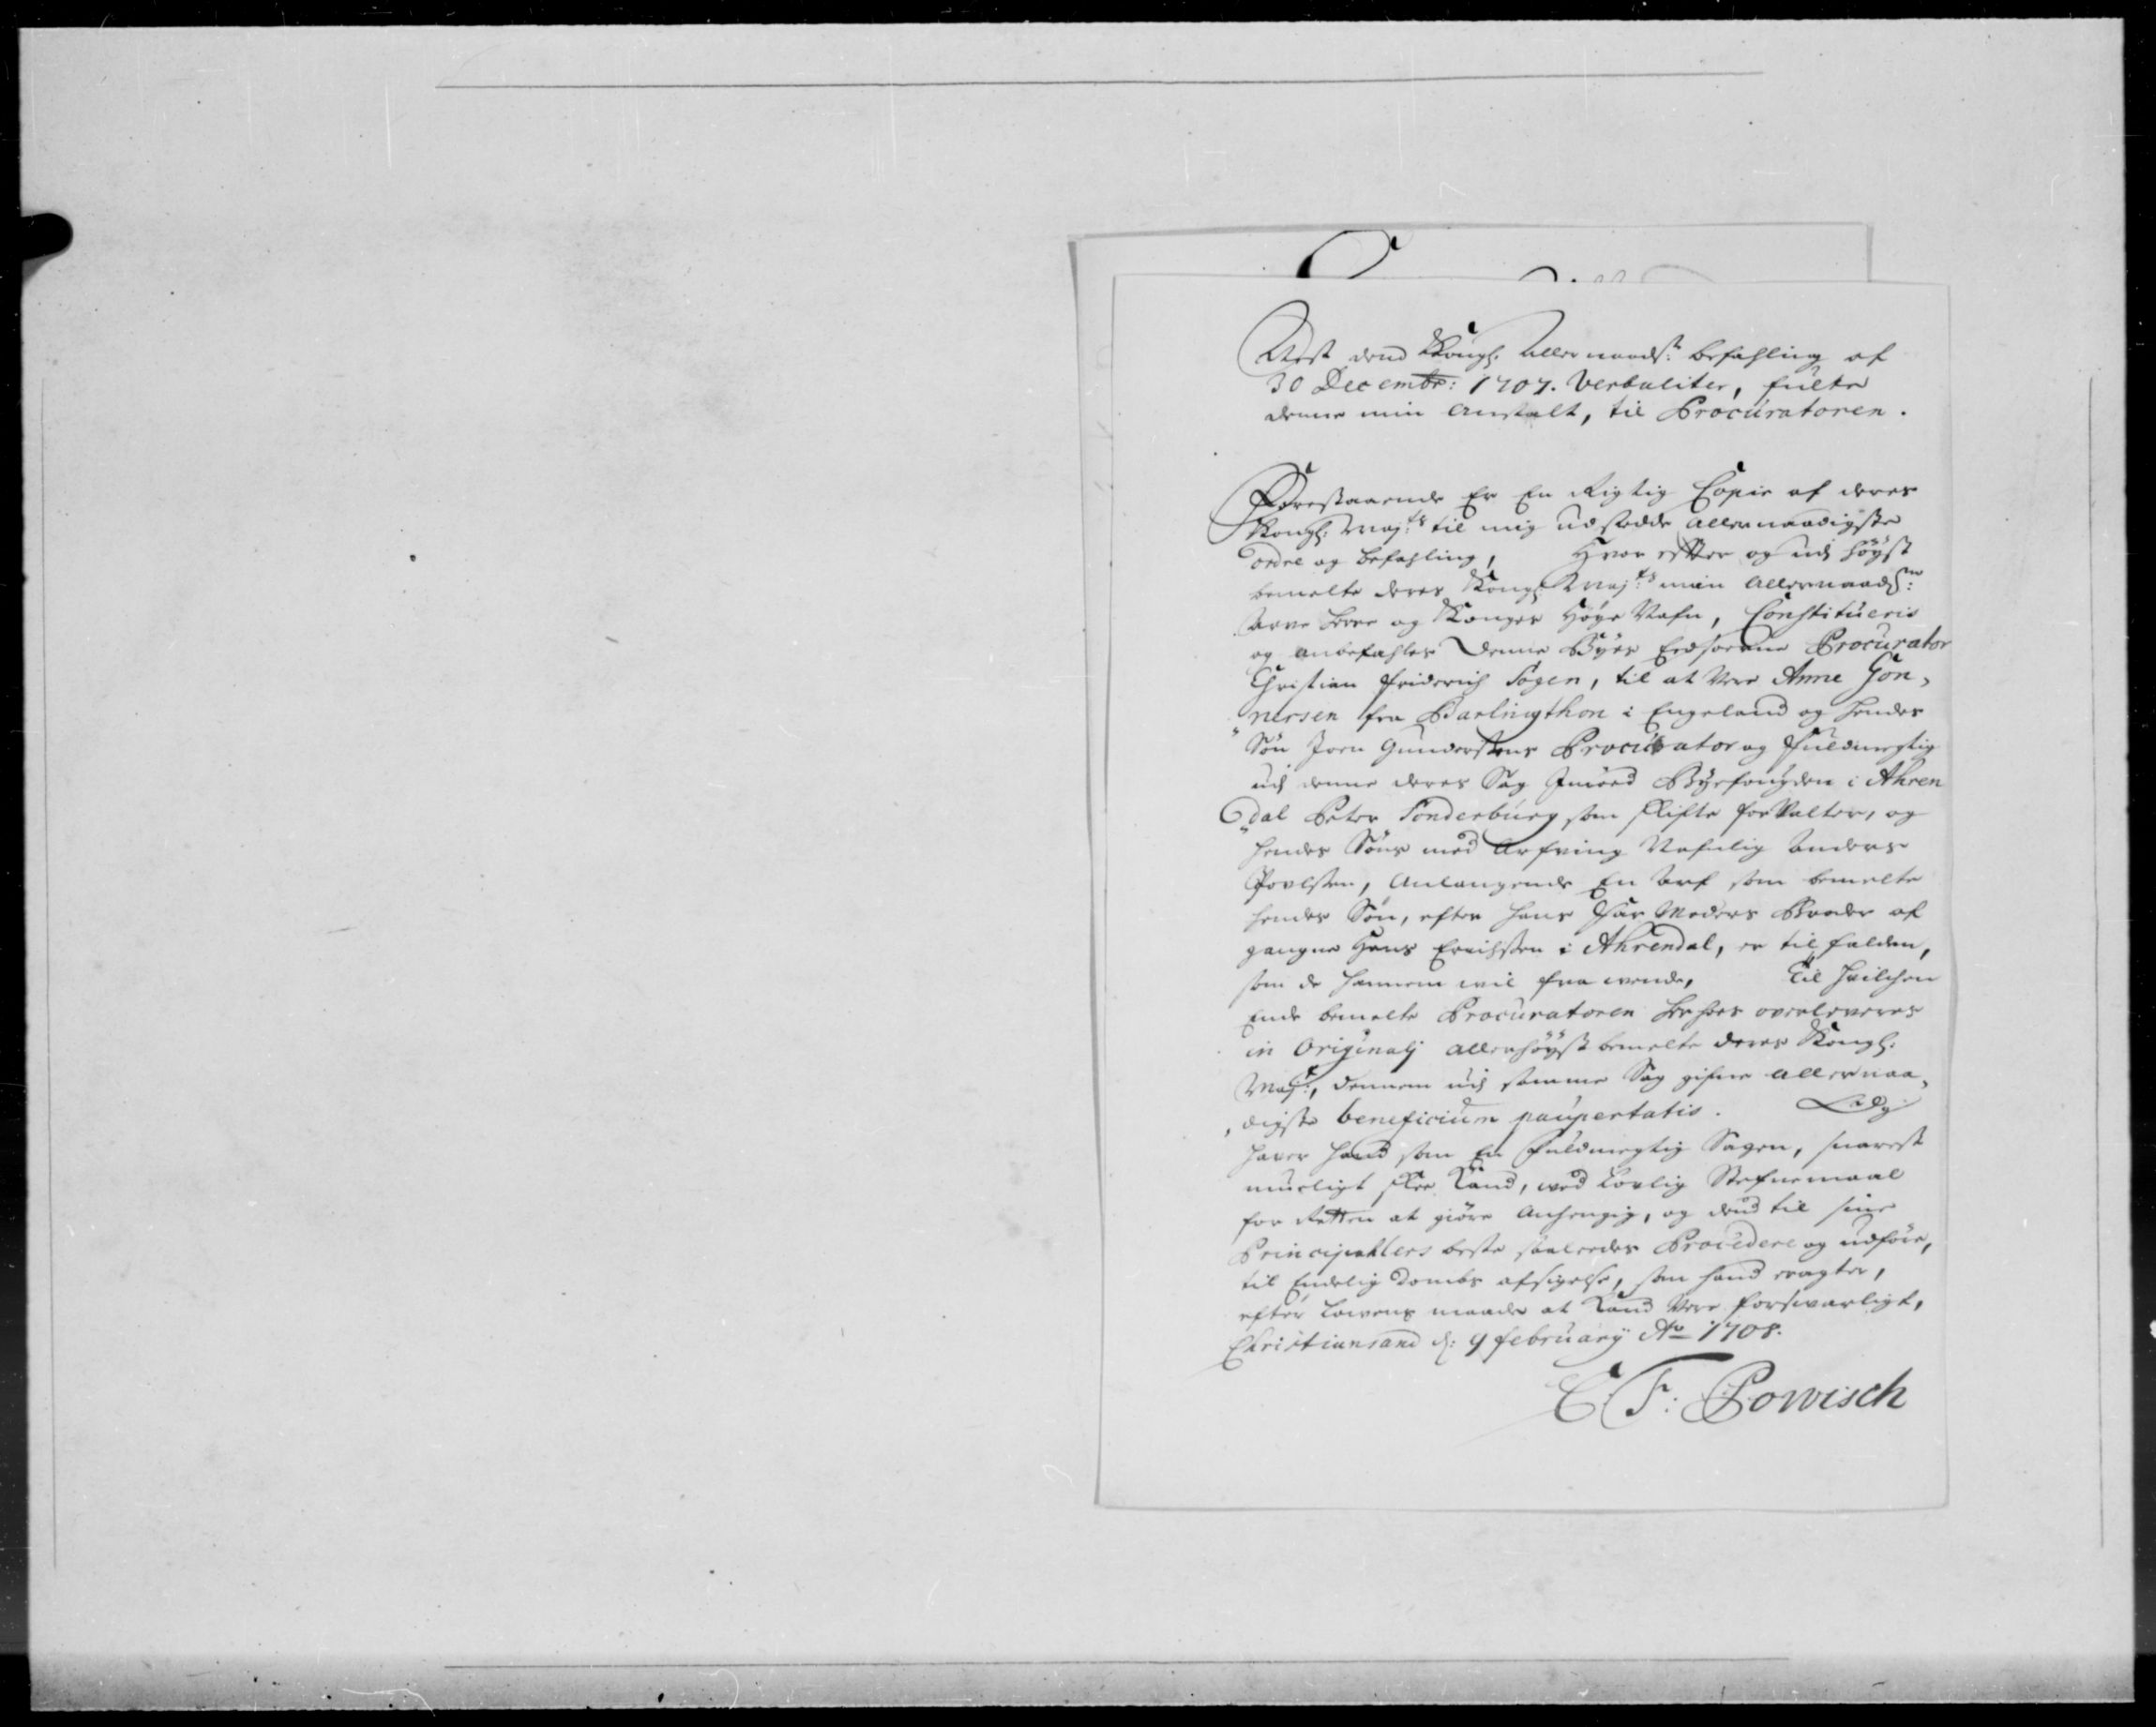 Nest dend Kongl: Allernaadst: befahling af
30 Decembr: 1707. Verbaliter, fulte
denne min Anstalt, til Procuratoren.
Forestaaende Er En Rigtig Copie af deres
Kongl: Maj:ts til mig udstedde allernaadigste
ordre og befahling, Hvor efter og udj höyst
bemelte deres Kongl: Maj:ts min Allernaadst:
Arve Herre og Konges Höye Nafn, Constitueris
og anbefahles denne Byes Procurator
Christian Friderich Togen, til at Være Anne Gon,
nersen fra Barlingthon i Engeland og hendes
Søn Joen Gundersens Procurator og Fuldmegtig
udj denne deres Sag Imod Byefougden i Ahren
dal Peter Sonderburg som skifte forValter, og
hendes Söns med Arfving Nafnlig Anders
Povelsen, Anlangende En Arf som bemelte
hendes Søn, efter hans Far Moders Broder af
gangne Hans Erichsen i Ahrendal, er til falden,
som de hannem vil fra wende, Til hvilchen
Ende bemelte Procuratoren her hos overleveres
in Originalj allerhöyst bemelte deres Kongl:
Maj:t, dennem udj samme Sag gifne allernaa,
digste beneficium paupertatis. Og
haver hand som En Fuldmegtig Sagen, snarest
mueligt skee Kand, wed Lovlig Stefnemaal
for Retten at giöre Anhengig, og dend til sine
Principahlers beste saaledes Procedere og udföre,
til Endelig Dombs afsigelse, som hand eragter,
efter Lowens maade at Kand Være forswarligt,
Christiansand d: 9 february Ao 1708.
C. F: Powisch